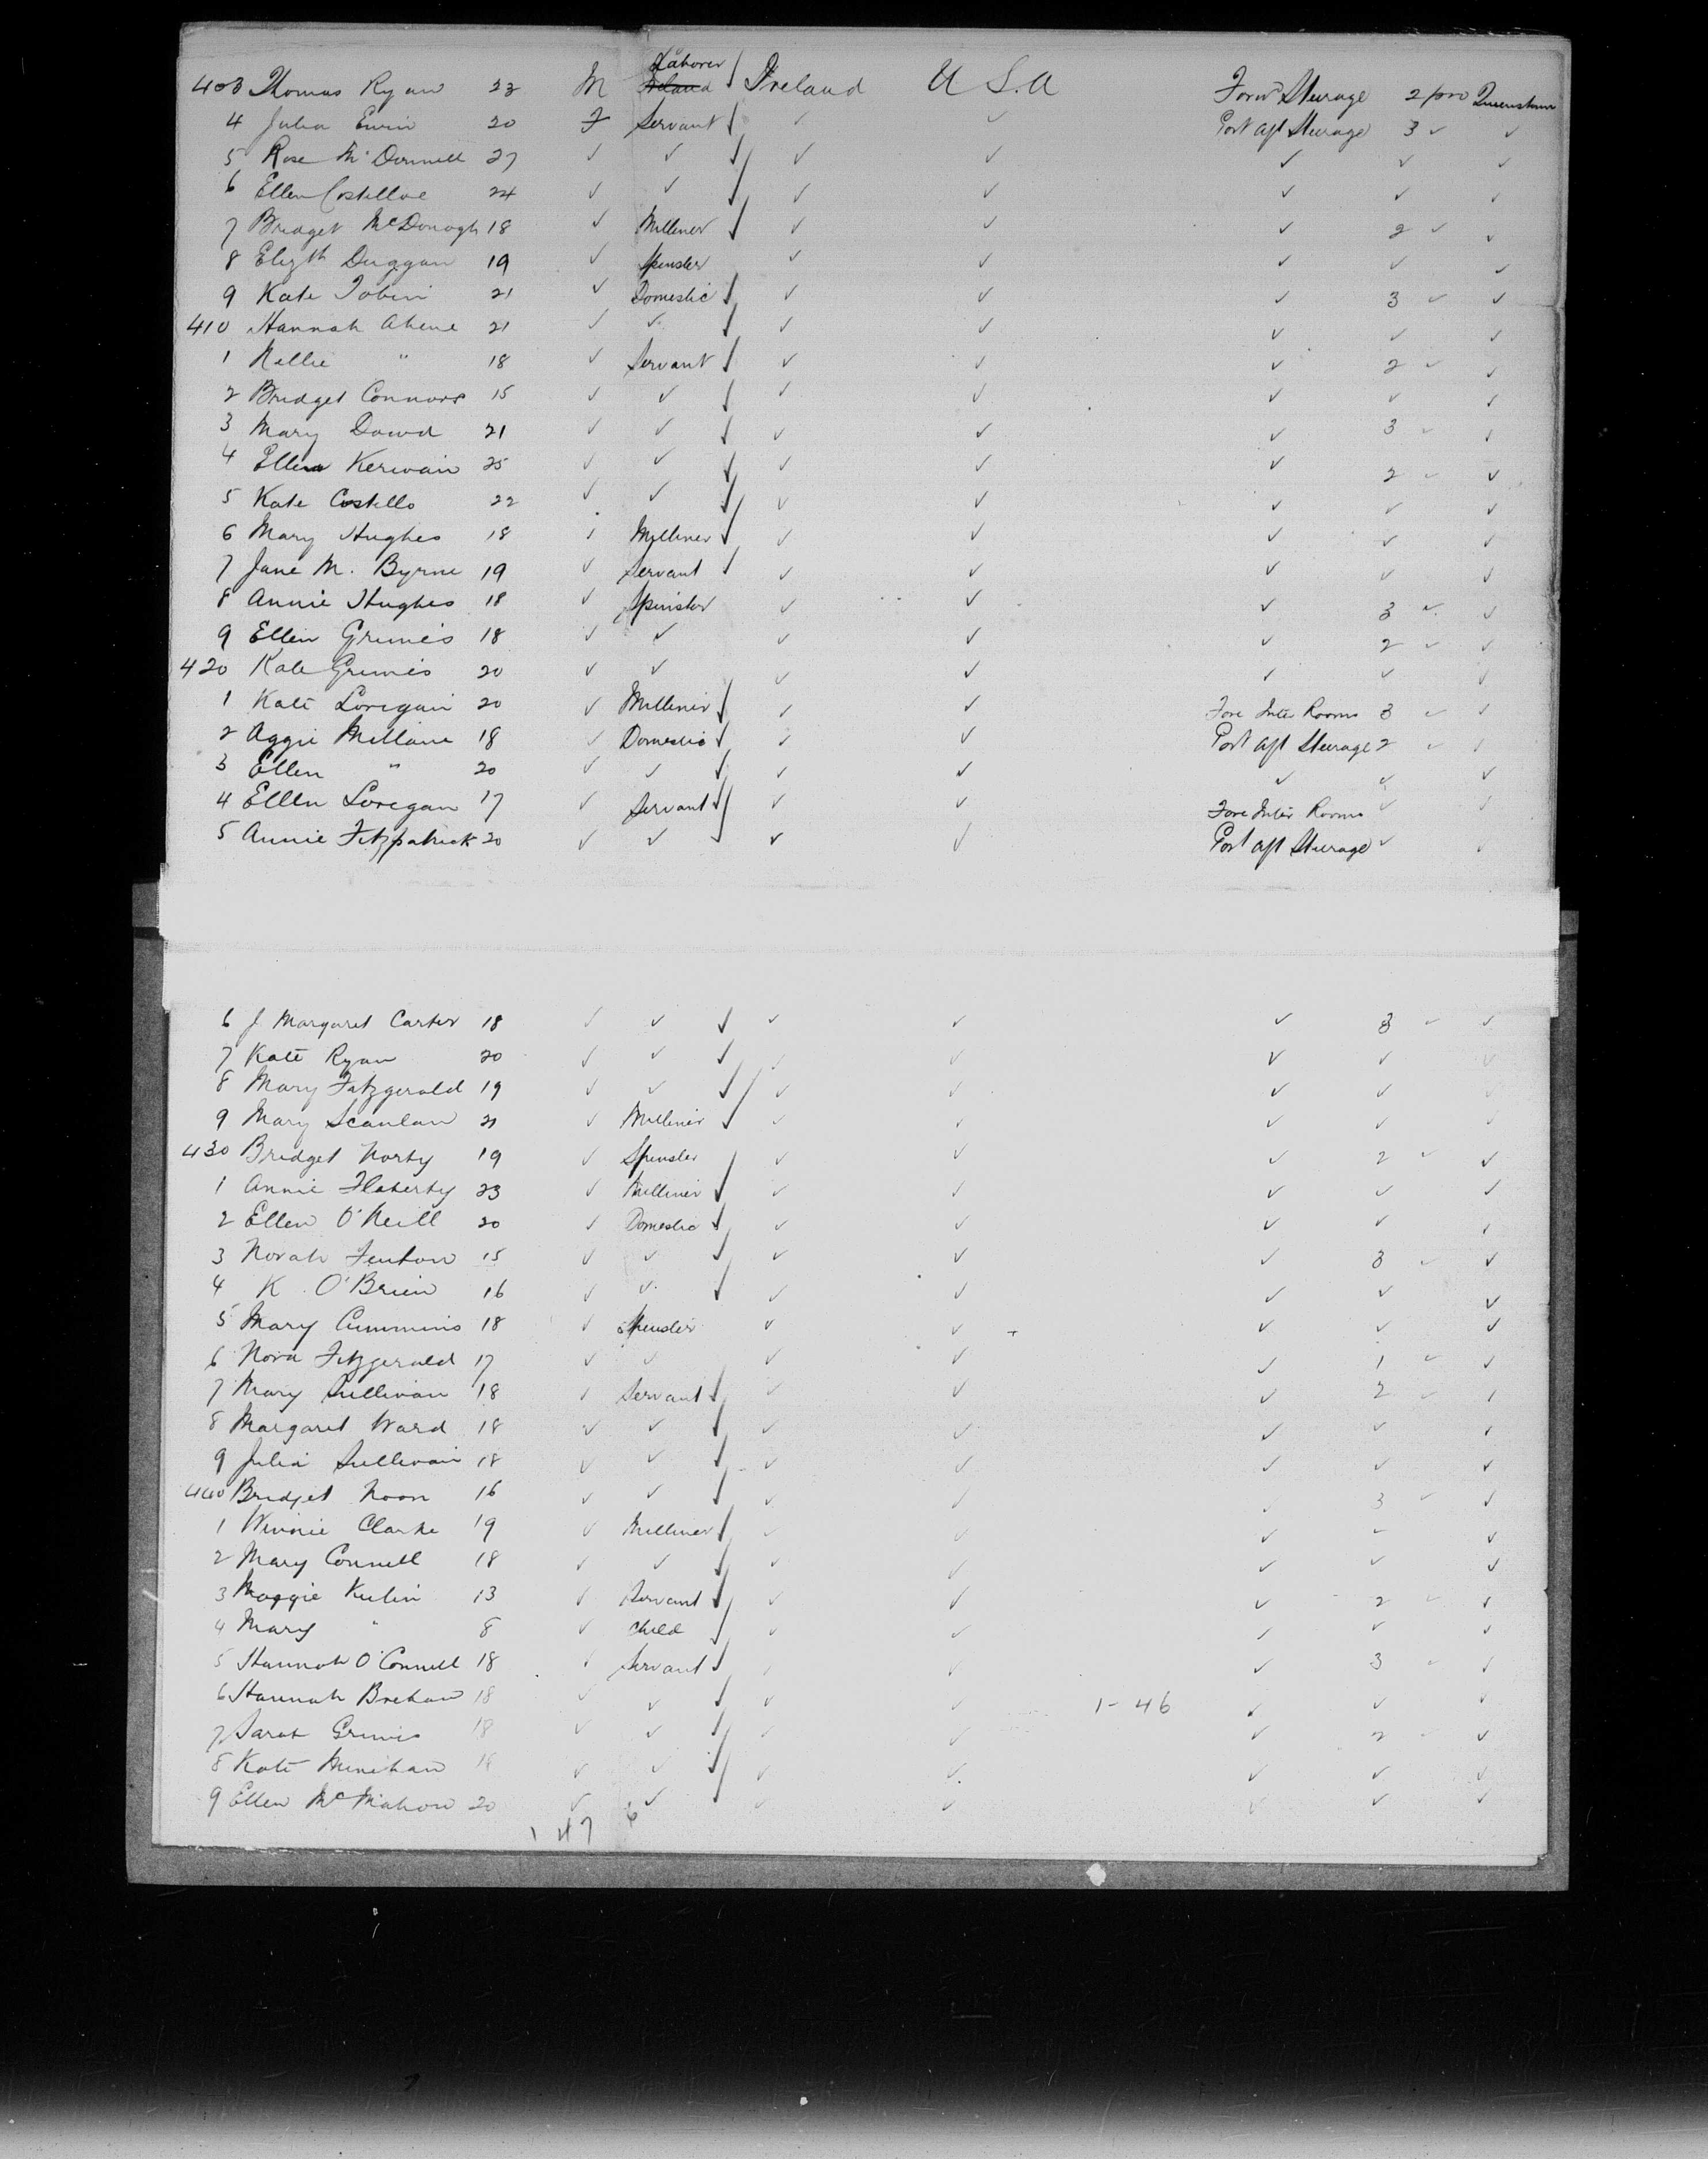 Laborer
403 Thomas Ryan 23 M Ireland Ireland U S.A Forw Steerage 2 pro Queenstown
4 Julia Erwin 20 F Servant ✓ ✓ Port aft Steerage 3 ✓ ✓
5 Rose McDonnell 27 ✓ ✓ ✓ ✓ ✓ ✓ ✓
6 Ellen Costelloe 24 ✓ ✓ ✓ ✓ ✓ ✓ ✓
7 Bridget McDonogh 18 ✓ Milliner ✓ ✓ ✓ 2 ✓ ✓
8 Elizth Duggan 19 ✓ Spinster ✓ ✓ ✓ ✓ ✓
9 Kate Tobin 21 ✓ Domestic ✓ ✓ ✓ 3 ✓ ✓
410 Hannah Ahene 21 ✓ ✓ ✓ ✓ ✓ ✓ ✓
1 Nellie " 18 ✓ Servant ✓ ✓ ✓ 2 ✓ ✓
2 Bridget Connors 15 ✓ ✓ ✓ ✓ ✓ ✓ ✓
3 Mary Dowd 21 ✓ ✓ ✓ ✓ ✓ 3 ✓ ✓
4 Ellen Kerwain 25 ✓ ✓ ✓ ✓ ✓ 2 ✓ ✓
5 Kate Costello 22 ✓ ✓ ✓ ✓ ✓ ✓ ✓
6 Mary Hughes 18 ✓ Milliner ✓ ✓ ✓ ✓ ✓
7 Jane M. Byrne 19 ✓ Servant ✓ ✓ ✓ ✓ ✓
8 Annie Hughes 18 ✓ Spinster ✓ ✓ ✓ 3 ✓ ✓
9 Ellen Grimes 18 ✓ ✓ ✓ ✓ ✓ 2 ✓ ✓
420 Kate Grimes 20 ✓ ✓ ✓ ✓ ✓ ✓ ✓
1 Kate Loregan 20 ✓ Milliner ✓ ✓ Fore Inter Rooms 3 ✓ ✓
2 Aggie Mellane 18 ✓ Domestic ✓ ✓ Port aft Steerage 2 ✓ ✓
3 Ellen " 20 ✓ ✓ ✓ ✓ ✓ ✓ ✓
4 Ellen Loregan 17 ✓ Servant ✓ ✓ Fore Inter Rooms ✓ ✓
5 Annie Fitzpatrick 20 ✓ ✓ ✓ ✓ Port aft Steerage ✓ ✓
6 J Margaret Carter 18 ✓ ✓ ✓ ✓ ✓ 3 ✓ ✓
7 Kate Ryan 20 ✓ ✓ ✓ ✓ ✓ ✓ ✓
8 Mary Fitzgerald 19 ✓ ✓ ✓ ✓ ✓ ✓ ✓
9 Mary Scanlan 21 ✓ Milliner ✓ ✓ ✓ ✓ ✓
430 Bridget Norty 19 ✓ Spinster ✓ ✓ ✓ 2 ✓ ✓
1 Annie Flaherty 23 ✓ Milliner ✓ ✓ ✓ ✓ ✓
2 Ellen O'Neill 20 ✓ Domestic ✓ ✓ ✓ ✓ ✓
3 Norah Fenton 15 ✓ ✓ ✓ ✓ ✓ 3 ✓ ✓
4 K. O'Brien 16 ✓ ✓ ✓ ✓ ✓ ✓ ✓
5 Mary Cummins 18 ✓ Spinster ✓ ✓ ✓ ✓ ✓
6 Nora Fitzgerald 17 ✓ ✓ ✓ ✓ ✓ 1 ✓ ✓
7 Mary Sullivan 18 ✓ Servant ✓ ✓ ✓ 2 ✓ ✓
8 Margaret Ward 18 ✓ ✓ ✓ ✓ ✓ ✓ ✓
9 Julia Sullivan 18 ✓ ✓ ✓ ✓ ✓ ✓ ✓
440 Bridget Noon 16 ✓ ✓ ✓ ✓ ✓ 3 ✓ ✓
1 Winnie Clarke 19 ✓ Milliner ✓ ✓ ✓ ✓ ✓
2 Mary Connell 18 ✓ ✓ ✓ ✓ ✓ ✓ ✓
3 Maggie Kulin 13 ✓ Servant ✓ ✓ ✓ 2 ✓ ✓
4 Mary " 8 ✓ Child ✓ ✓ ✓ ✓ ✓
5 Hannah O'Connell 18 ✓ Servant ✓ ✓ ✓ 3 ✓ ✓
6 Hannah Brehan 18 ✓ ✓ ✓ ✓ 1-46 ✓ ✓ ✓
7 Sarah Grimes 18 ✓ ✓ ✓ ✓ ✓ 2 ✓ ✓
8 Kate Minihan 18 ✓ ✓ ✓ ✓ ✓ ✓ ✓
9 Ellen McMahon 20 ✓ ✓ ✓ ✓ ✓ ✓ ✓
1 47 6